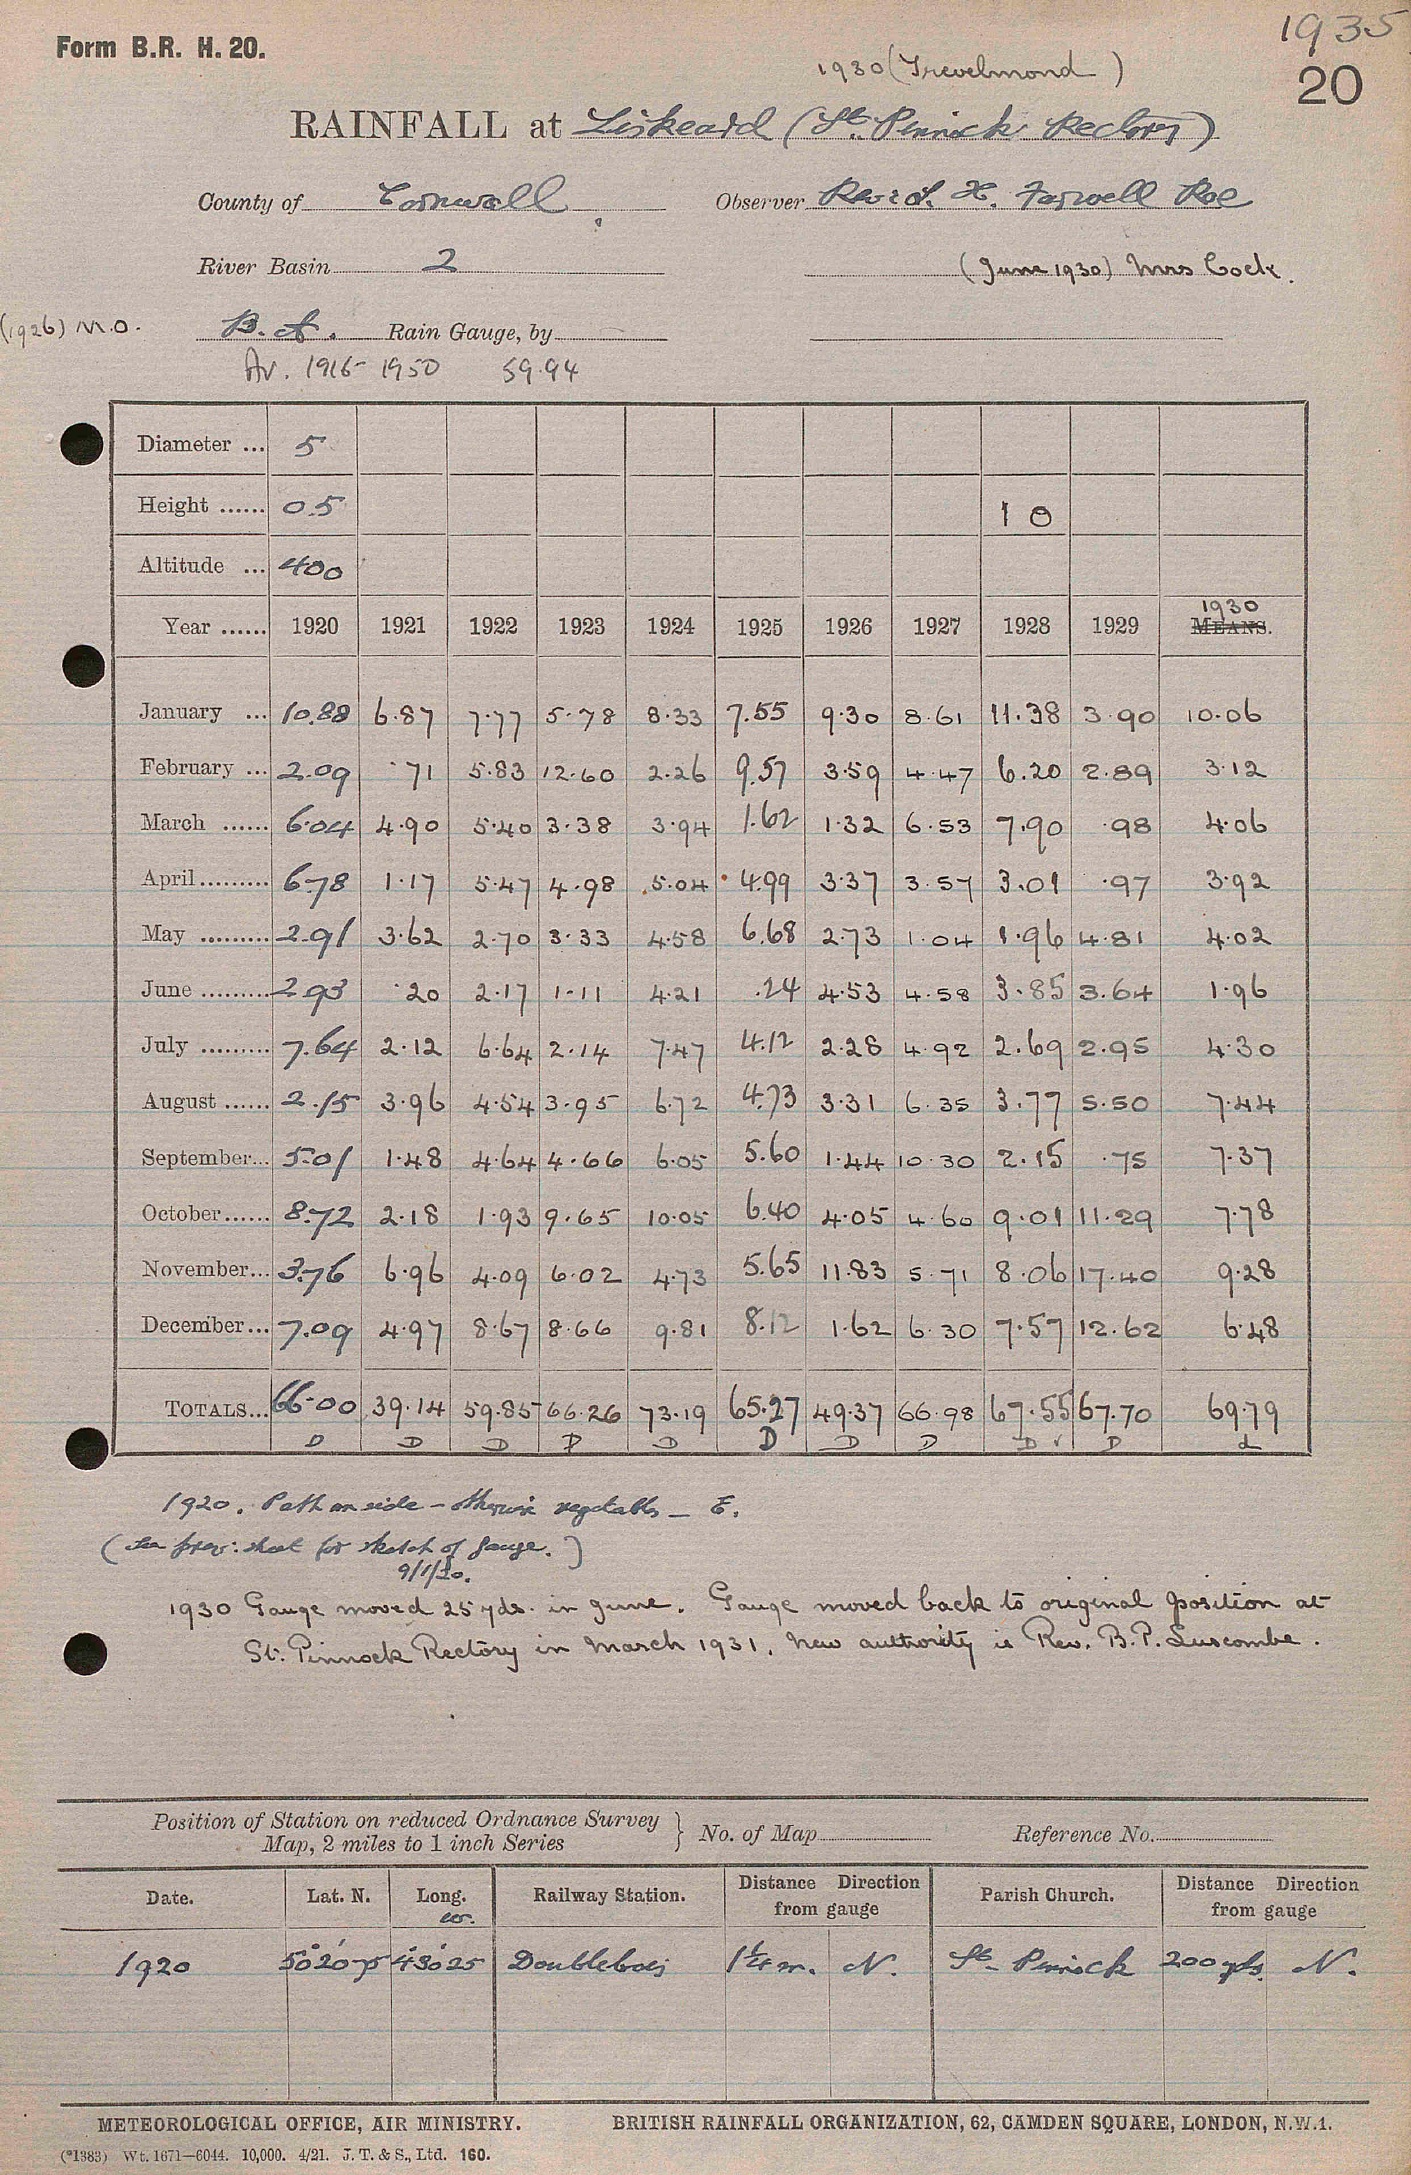 1935
Form B.R. H. 20.
1930 (Trevelmond)
20
RAINFALL at Liskeard (St. Pinnock Rectory)
County of Cornwall. Observer Revd. L. H. Farwell Roe
River Basin 2 (June 1930) Mrs Cock.
(1926) M.O. B.A. Rain Gauge, by
Av. 1916-1950 59.94
Diameter ... 5
Height ...... 0.5 1 0
Altitude ... 400
1930
Year ...... 1920 1921 1922 1923 1924 1925 1926 1927 1928 1929 MEANS.
January ... 10.88 6.87 7.77 5.78 8.33 7.55 9.30 8.61 11.38 3.90 10.06
February ... 2.09 .71 5.83 12.60 2.26 9.57 3.59 4.47 6.20 2.89 3.12
March ...... 6.04 4.90 5.40 3.38 3.94 1.62 1.32 6.53 7.90 .98 4.06
April......... 6.78 1.17 5.47 4.98 5.04 4.99 3.37 3.57 3.01 .97 3.92
May ......... 2.91 3.62 2.70 3.33 4.58 6.68 2.73 1.04 1.96 4.81 4.02
June ......... 2.93 .20 2.17 1.11 4.21 .24 4.53 4.58 3.85 3.64 1.96
July ......... 7.64 2.12 6.64 2.14 7.47 4.12 2.28 4.92 2.69 2.95 4.30
August ...... 2.15 3.96 4.54 3.95 6.72 4.73 3.31 6.35 3.77 5.50 7.44
September... 5.01 1.48 4.64 4.66 6.05 5.60 1.44 10.30 2.15 .75 7.37
October...... 8.72 2.18 1.93 9.65 10.05 6.40 4.05 4.60 9.01 11.29 7.78
November... 3.76 6.96 4.09 6.02 4.73 5.65 11.83 5.71 8.06 17.40 9.28
December... 7.09 4.97 8.67 8.66 9.81 8.12 1.62 6.30 7.57 12.62 6.48
TOTALS... 66.00 39.14 59.85 66.26 73.19 65.27 49.37 66.98 67.55 67.70 69.79
D D D D D D D D D ✓ D d
1920. Path on side - otherwise vegetables - E.
(See prev: sheet for sketch of gauge.)
9/1/20.
1930 Gauge moved 25 yds. in June. Gauge moved back to original position at
St. Pinnock Rectory in March 1931. New authority is Rev. B.P. Luscombe.
Position of Station on reduced Ordnance Survey
Map, 2 miles to 1 inch Series } No. of Map Reference No.
Date. Lat. N. Long. Railway Station. Distance Direction from gauge Parish Church. Distance Direction from gauge
1920 50° 20' 75 4° 30' 25 Doublebois 1¼ m. N. St. Pinnock 200 yds. N.
METEOROLOGICAL OFFICE, AIR MINISTRY. BRITISH RAINFALL ORGANIZATION, 62, CAMDEN SQUARE, LONDON, N.W.1.
(*1383) Wt. 1671—6044. 10,000. 4/21. J. T. & S., Ltd. 160.